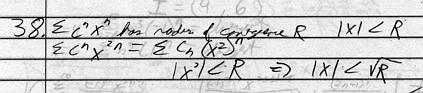 38. Σ cⁿxⁿ has radius of convergence R |x| < R
Σ cⁿx²ⁿ = Σ Cₙ(x²)ⁿ
|x²| < R ⇒ |x| < √R